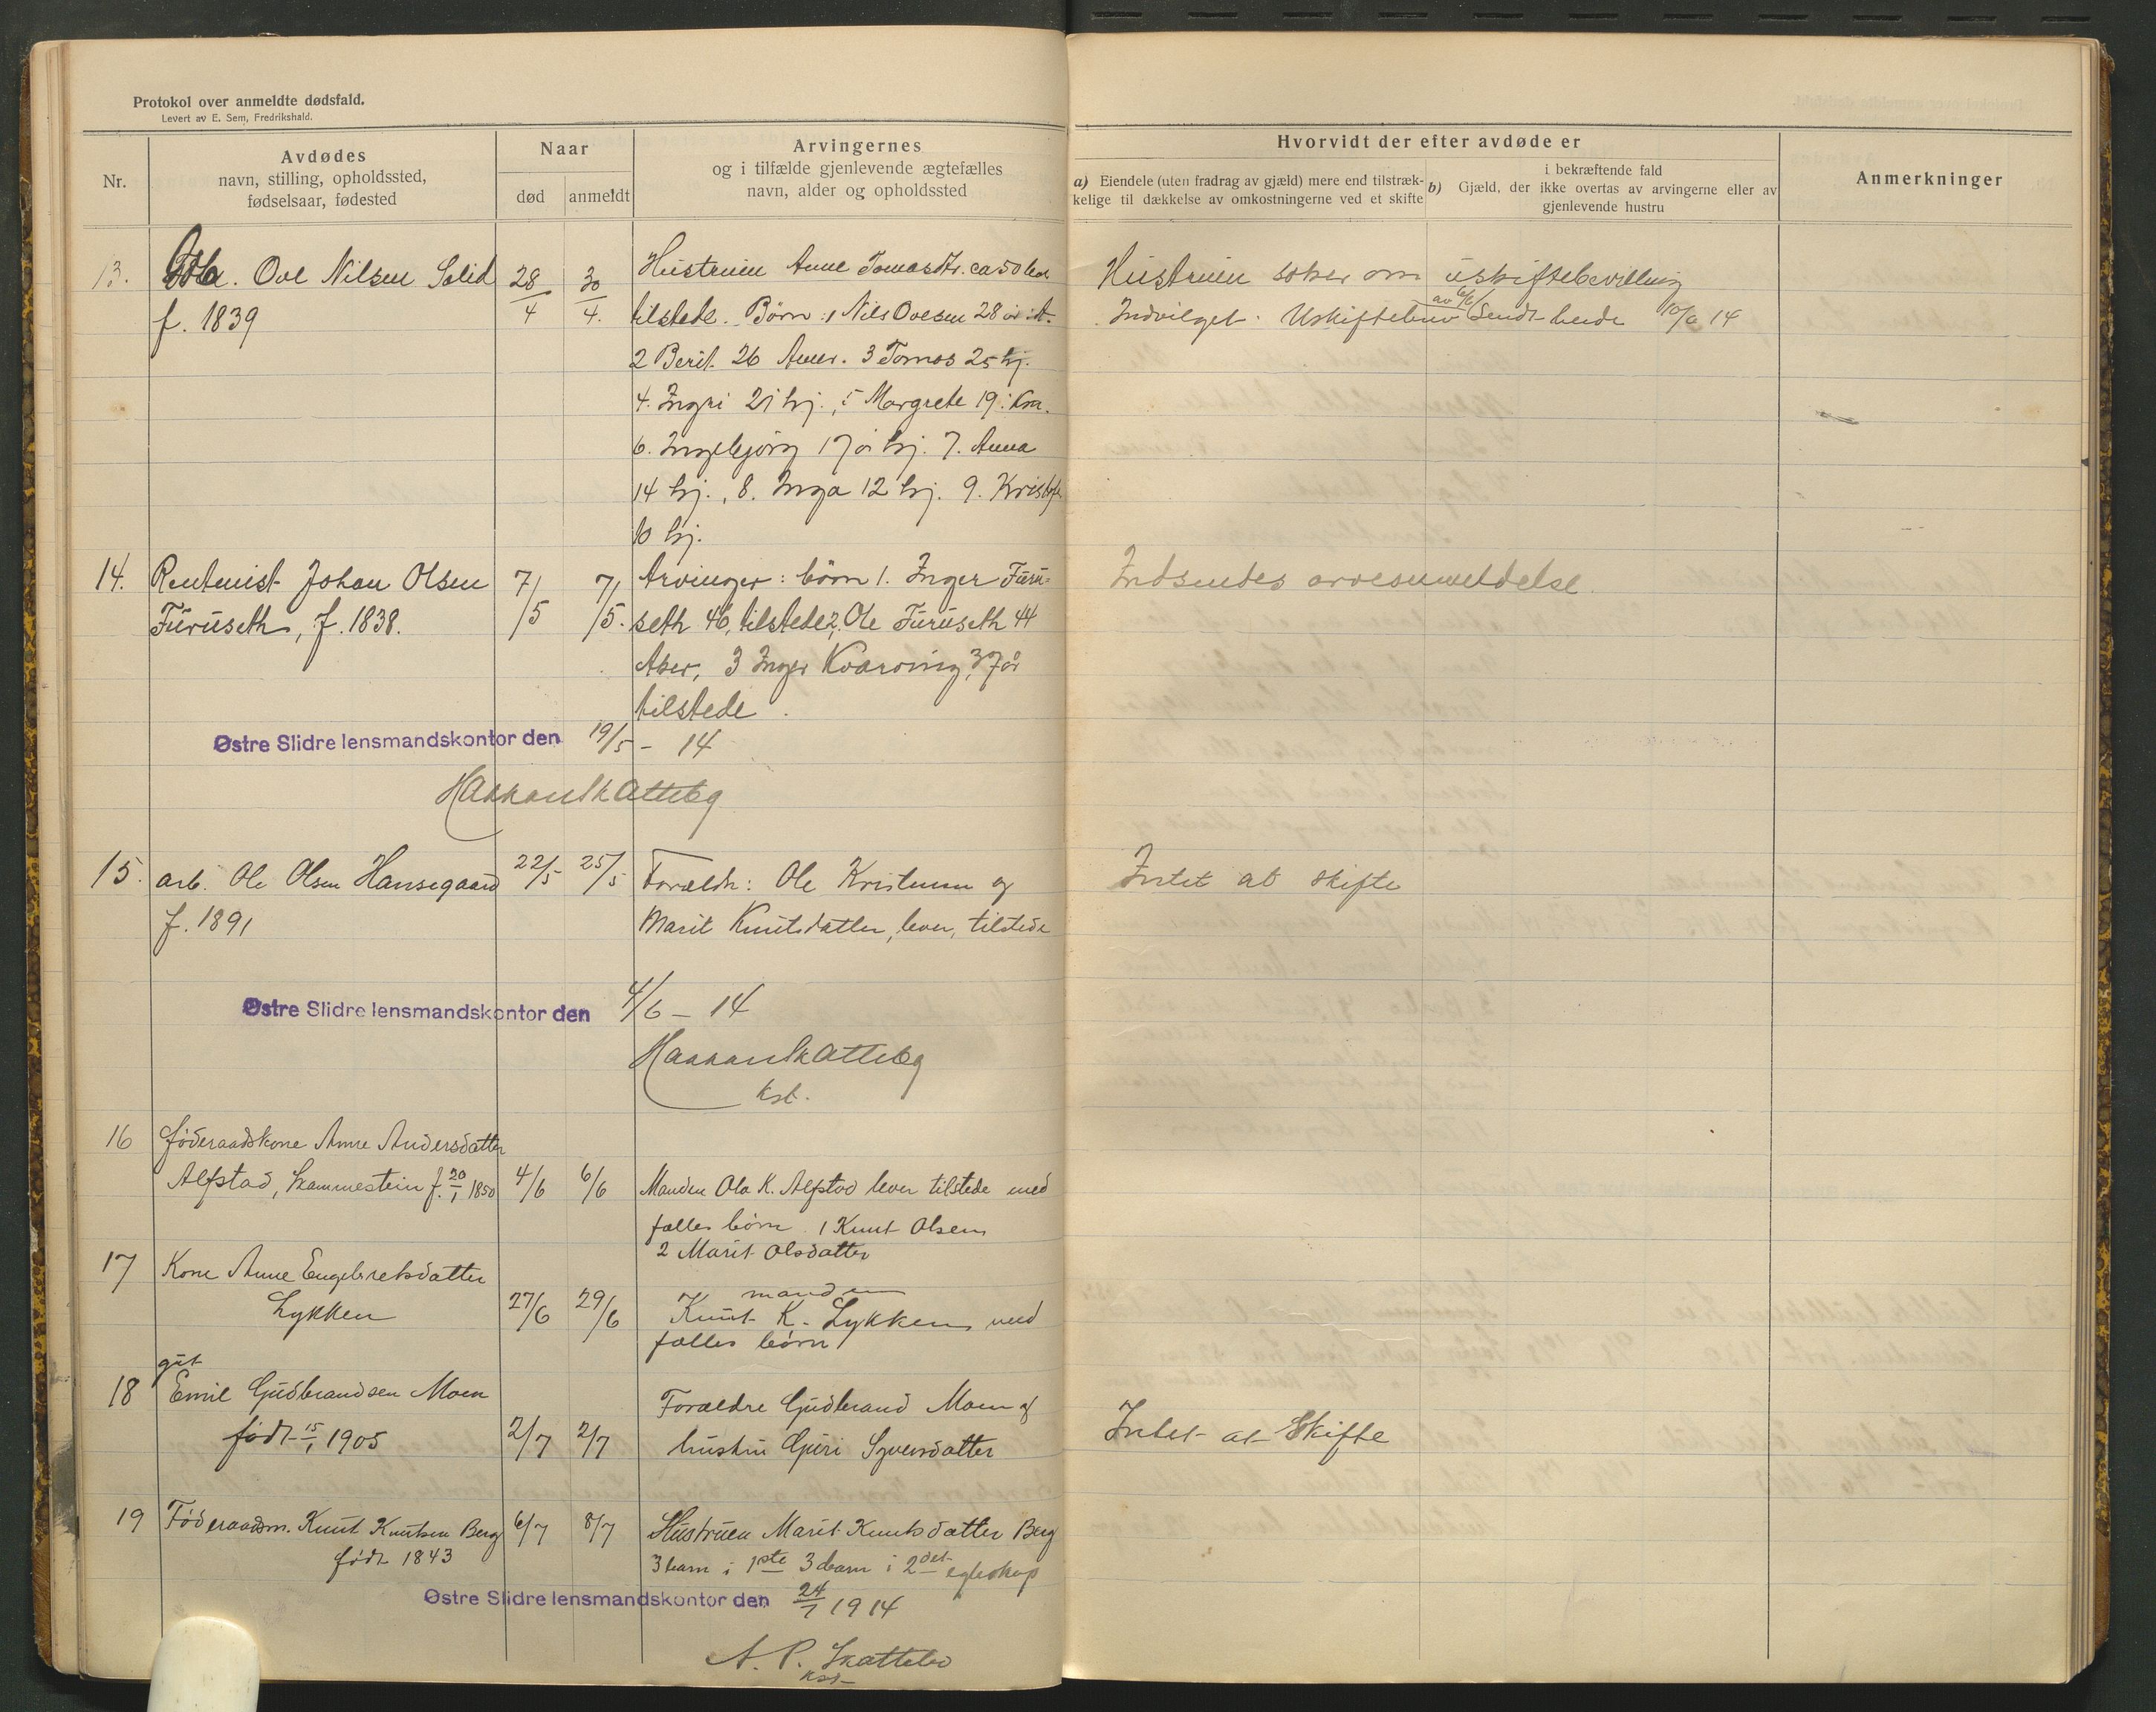 Protokol over anmeldte dødsfald.
Levert av E. Sem, Fredrikshald.
Nr.
Avdødes
navn, stilling, opholdssted,
fødselsaar, fødested
Naar
død
anmeldt
Arvingernes
og i tilfælde gjenlevende ægtefælles
navn, alder og opholdssted
Hvorvidt der efter avdøde er
a) Eiendele (uten fradrag av gjæld) mere end tilstræk-
kelige til dækkelse av omkostningerne ved et skifte
b) i bekræftende fald
Gjæld, der ikke overtas av arvingerne eller av
gjenlevende hustru
Anmerkninger
13. Ove Nilsen Solid 28/4 30/4.
f. 1839
Hustruen Anne Tomasdtr. ca 50
tilstede. Børn: 1 Nils Ovesen 28 år
2 Berit 26 Amer. 3 Tomas 25 hj.
4. Ingri 21 hj., 5 Margrete 19 Kra.
6. Ingebjørg 17 år hj. 7. Anna
14 hj., 8. Inga 12 hj. 9. Kristofer
10 hj.
Hustruen søker om uskiftebevilling
Indvilget. Uskiftebrev av 6/6 sendt 10/6 14
14. Rentenist Johan Olsen 7/5 7/5.
Furuseth, f. 1838.
Arvinger: børn 1. Inger Furu=
seth 46, tilstede 2. Ole Furuseth 44
Aker, 3 Inger Kvarving 37 år
tilstede.
Indsendes arveanmeldelse.
Østre Slidre lensmandskontor den 19/5 - 14
Haakan Skattebg
15. arb. Ole Olsen Hansegaard 22/5 25/5
f. 1891
Foreldr: Ole Kristensen og
Marit Knutsdatter, lever, tilstede
Intet at skifte
Østre Slidre lensmandskontor den 4/6 - 14
Haakan Skattebg
kst.
16 føderaadskone Anne Andersdatter
Alfstad, Skammestein f. 20/1 1850 4/6 6/6
Manden Ola K. Alfstad lever tilstede med
fælles børn 1 Knut Olsen
2 Marit Olsdatter
17 Kone Anne Engebretsdatter
Lykken 27/6 29/6
manden
Knut K. Lykken med
fælles børn
gut
18 Emil Gudbrandsen Moen
født 15/1 1905 2/7 2/7
Forældre Gudbrand Moen og
hustru Guri Syversdatter
Intet at Skifte
19 Føderaadsm. Knut Knutsen Berg 6/7 8/7
født 1843
Hustruen Marit Knutsdatter Berg
3 barn i 1ste 3 barn i 2det egteskap
Østre Slidre lensmandskontor den 24/7 1914
A. P. Skattebo
kst